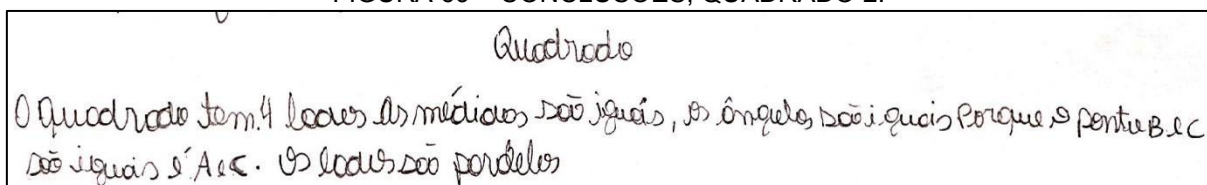 Quadrado
O Quadrado tem 4 lados As médidas são iguais, os ângulos são iguais Porque o ponto B e C
são iguais e A e C. Os lados são pardelos